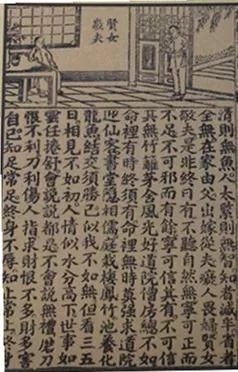 賢女
敬夫
清則無魚人太緊則無智知者減半省者
全無在家由父出嫁從夫癡人畏婦賢女
敬夫是非終日有不聽自然無寧可正而
不足不可邪而有餘寧可信其有不可信
其無竹籬茅舍風光好道院僧房總不如
命裡有時終須有命裡無時莫強求道院
迎仙客書堂隱相儒庭栽棲鳳竹池養化
龍魚結交須勝己似我不如無但看三五
日相見不如初人情似水分高下世事如
雲任捲舒會說說都是不會說無禮磨刀
恨不利刀利傷人指求財恨不多財多害
自己知足常足終身不辱知止常止終身